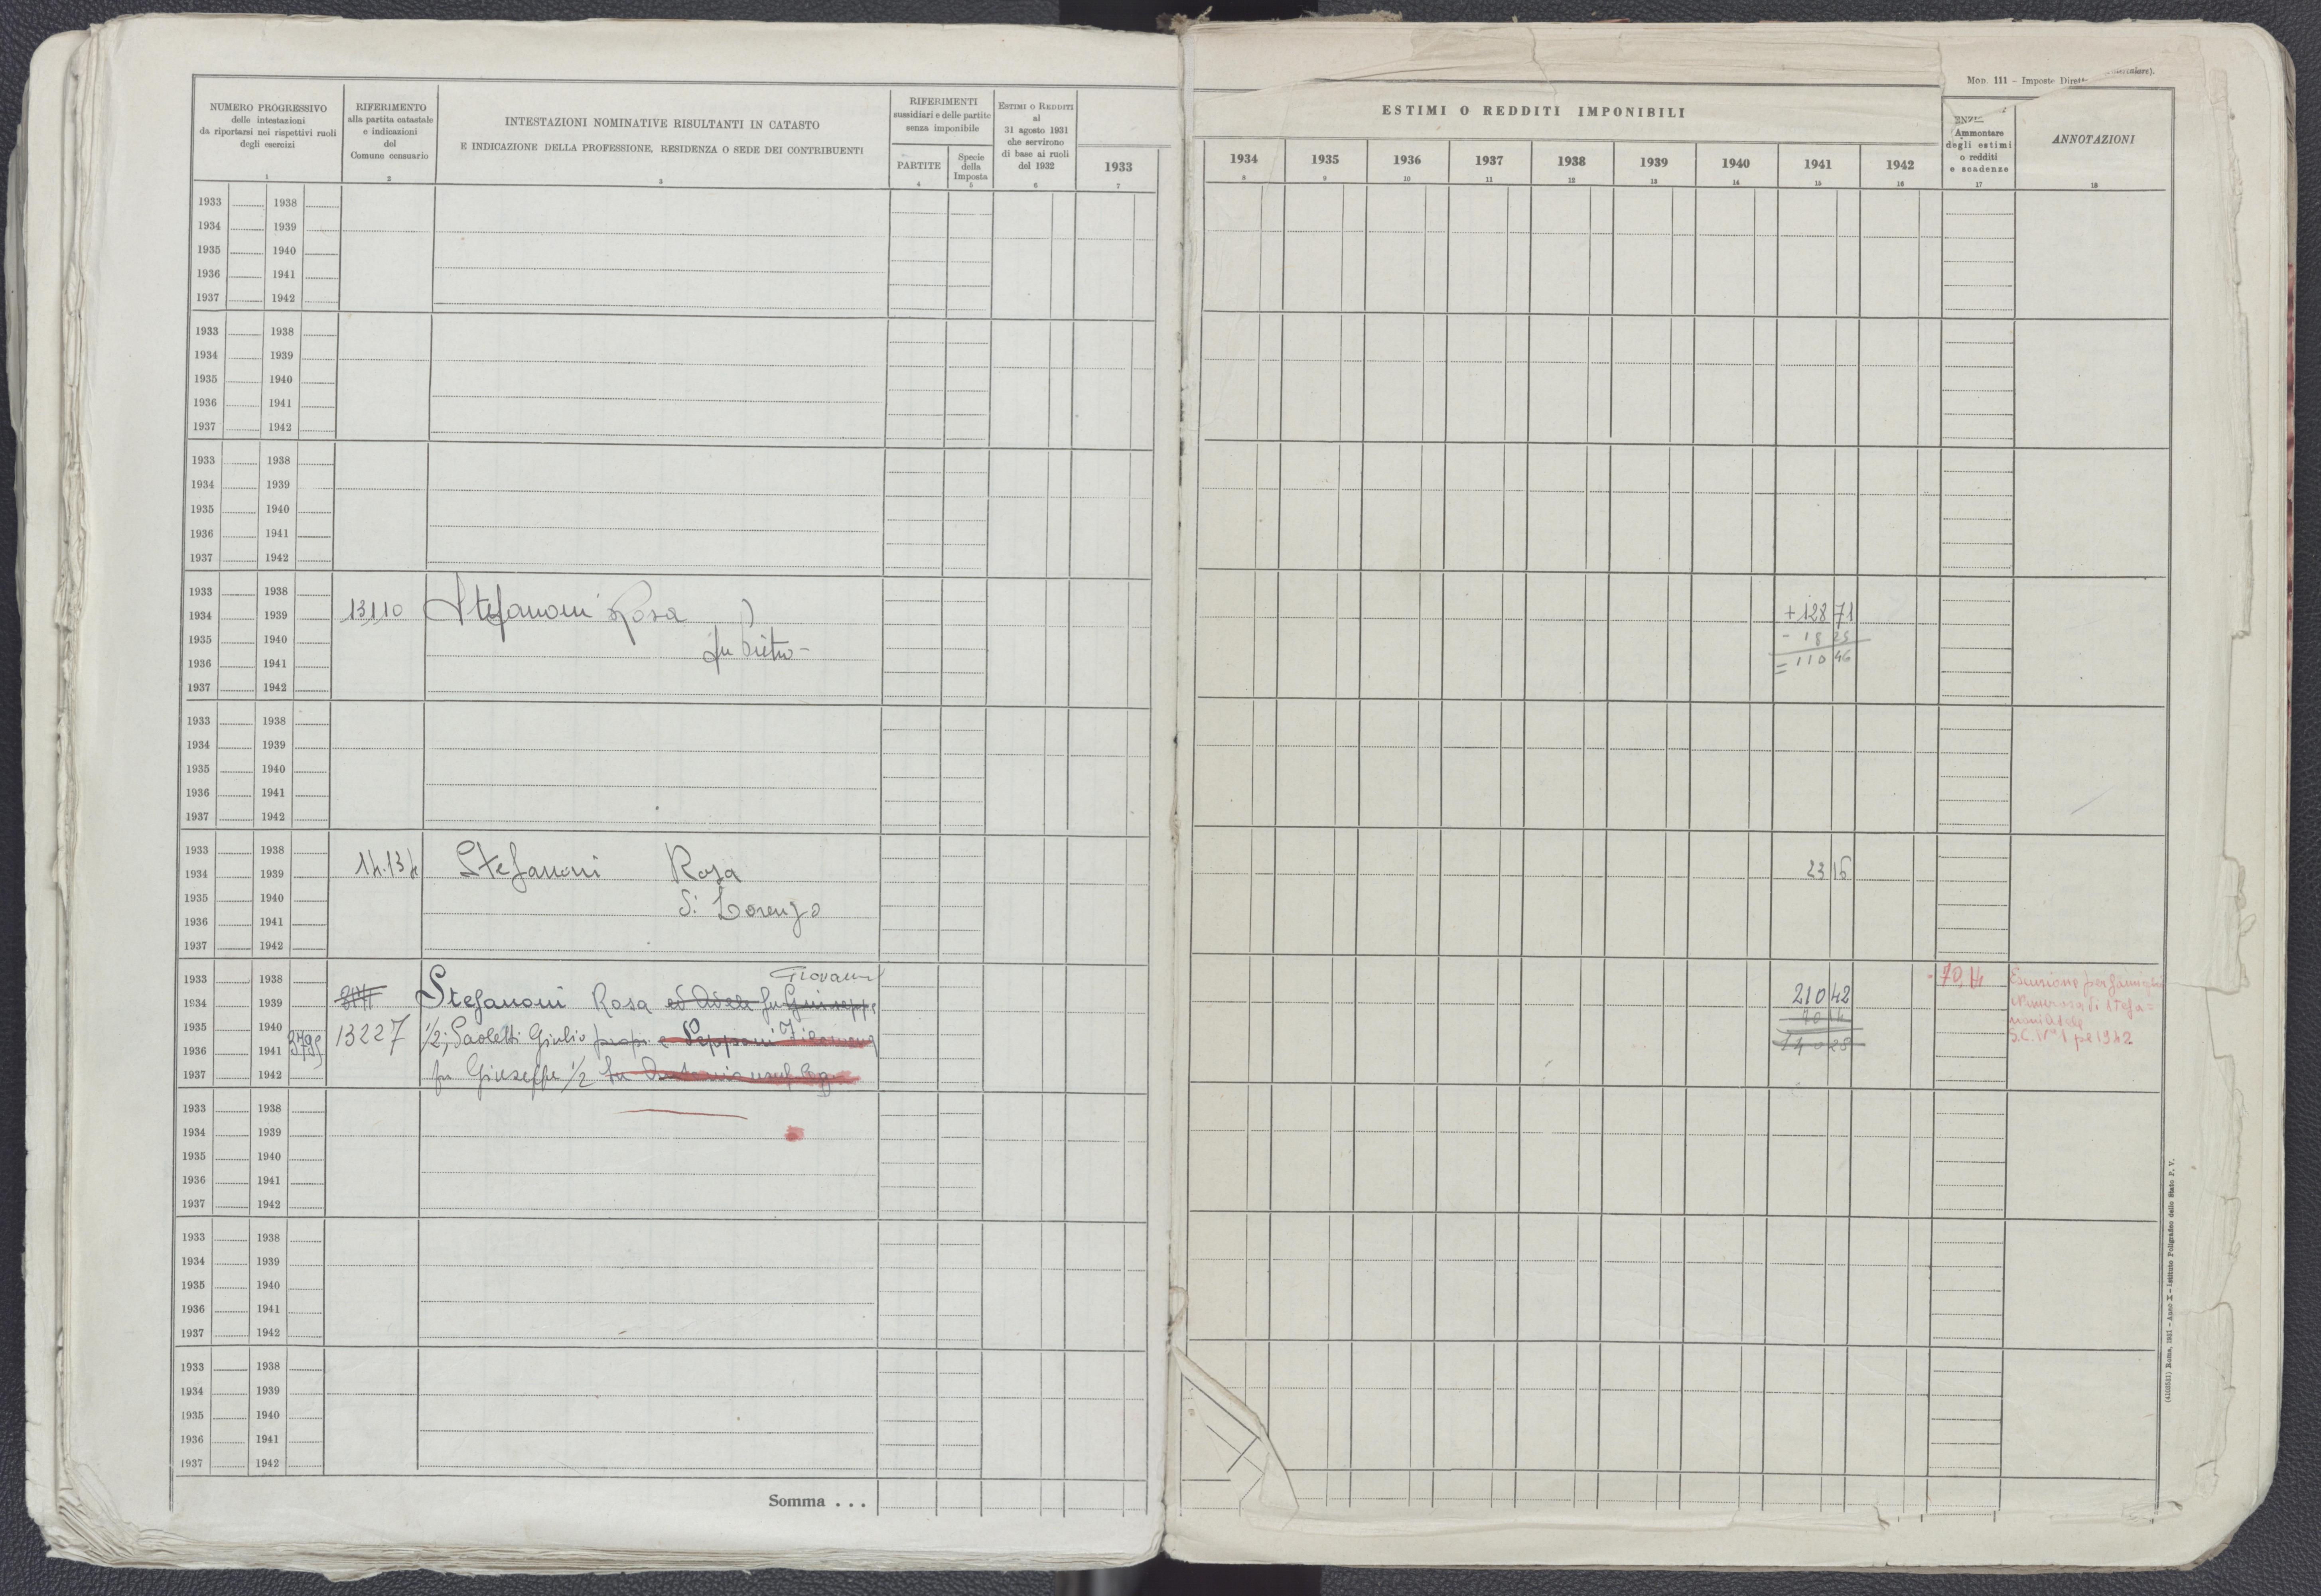 NUMERO PROGRESSIVO
delle intestazioni
da riportarsi nei rispettivi ruoli
degli esercizi
1
RIFERIMENTO
alla partita catastale
e indicazioni
del
Comune censuario
2
INTESTAZIONI NOMINATIVE RISULTANTI IN CATASTO
E INDICAZIONE DELLA PROFESSIONE, RESIDENZA O SEDE DEI CONTRIBUENTI
3
RIFERIMENTI
sussidiari e delle partite
senza imponibile
PARTITE
4
Specie
della
Imposta
5
ESTIMI O REDDITI
al
31 agosto 1931
che servirono
di base ai ruoli
del 1932
6
1933
7
Mod. 111 - Imposte Dirette
ESTIMI O REDDITI IMPONIBILI
1934 1935 1936 1937 1938 1939 1940 1941 1942
8 9 10 11 12 13 14 15 16
Ammontare
degli estimi
o redditi
e scadenze
17
ANNOTAZIONI
18
1933 1938
1934 1939
1935 1940
1936 1941
1937 1942
1933 1938
1934 1939
1935 1940
1936 1941
1937 1942
1933 1938
1934 1939
1935 1940
1936 1941
1937 1942
1933 1938
1934 1939 13110 Stefanoni Rosa + 128 71
1935 1940 fu Pietro - - 18 25
1936 1941 = 110 46
1937 1942
1933 1938
1934 1939
1935 1940
1936 1941
1937 1942
1933 1938
1934 1939 14.134 Stefanoni Rosa 23 16
1935 1940 di Lorenzo
1936 1941
1937 1942
1933 1938 Giovanni - 70,14 Esenzione per famiglia
1934 1939 Stefanoni Rosa ed Adele fu Giuseppe 210 42 Numerosa di Stefa=
1935 1940 13227 1/2; Paoletti Giulio propr. e Pepponi Filomena 70 14 noni Adele
1936 1941 3795 140 28 S.C. N° 1 pel 1942
1937 1942 fu Giuseppe 1/2 fu Antonio usuf. legg.
1933 1938
1934 1939
1935 1940
1936 1941
1937 1942
1933 1938
1934 1939
1935 1940
1936 1941
1937 1942
1933 1938
1934 1939
1935 1940
1936 1941
1937 1942
Somma . . .
Roma, 1931 - Anno X - Istituto Poligrafico dello Stato P. V.